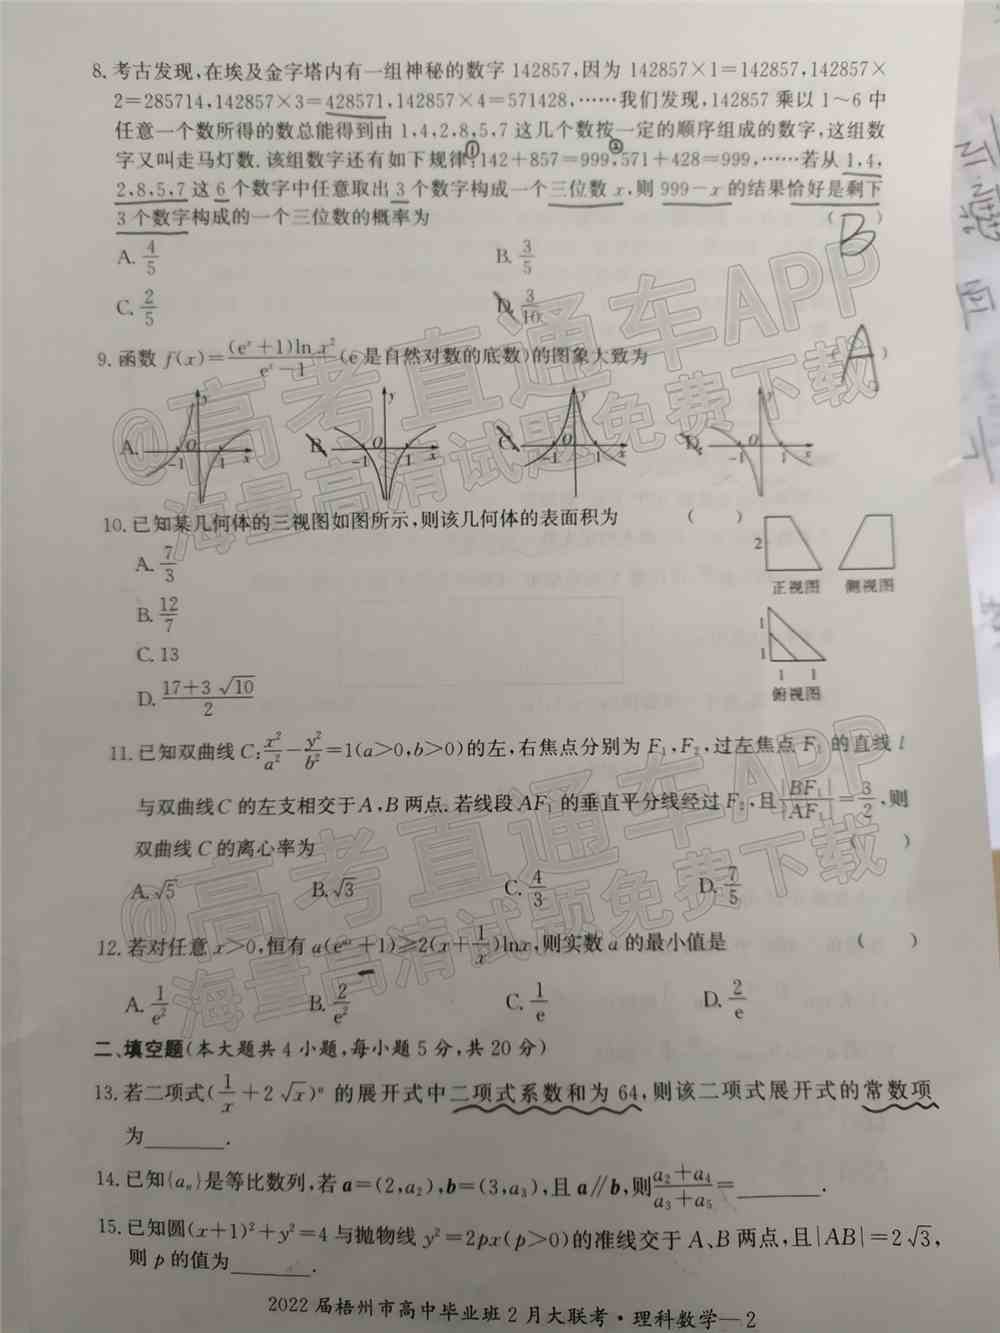 8. 考古发现,在埃及金字塔内有一组神秘的数字 142857,因为 142857×1=142857,142857×
2=285714,142857×3=428571,142857×4=571428,……我们发现,142857 乘以 1~6 中
任意一个数所得的数总能得到由 1,4,2,8,5,7 这几个数按一定的顺序组成的数字,这组数
① ②
字又叫走马灯数. 该组数字还有如下规律:142+857=999,571+428=999,……若从 1,4,
2,8,5,7 这 6 个数字中任意取出 3 个数字构成一个三位数 x,则 999-x 的结果恰好是剩下
3 个数字构成的一个三位数的概率为 ( B )
A. 4/5 B. 3/5
C. 2/5 D. 3/10
9. 函数 f(x)=(eˣ+1)ln x²/(eˣ-1) (e 是自然对数的底数)的图象大致为 ( A )
A. -1 O 1 x y B. -1 O 1 x y C. -1 O 1 x y D. -1 O 1 x y
10. 已知某几何体的三视图如图所示,则该几何体的表面积为 ( )
A. 7/3
B. 12/7
C. 13
D. (17+3√10)/2
2
正视图 侧视图
1
1
1 1
俯视图
11. 已知双曲线 C: x²/a² - y²/b² =1(a>0,b>0)的左,右焦点分别为 F₁,F₂,过左焦点 F₁ 的直线 l
与双曲线 C 的左支相交于 A,B 两点. 若线段 AF₁ 的垂直平分线经过 F₂,且 |BF₁|/|AF₁| = 3/2,则
双曲线 C 的离心率为 ( )
A. √5 B. √3 C. 4/3 D. 7/5
12. 若对任意 x>0,恒有 a(eᵃˣ+1)≥2(x+1/x)lnx,则实数 a 的最小值是 ( )
A. 1/e² B. 2/e² C. 1/e D. 2/e
二、填空题(本大题共 4 小题,每小题 5 分,共 20 分)
13. 若二项式(1/x+2√x)ⁿ 的展开式中二项式系数和为 64,则该二项式展开式的常数项
为________.
14. 已知{aₙ}是等比数列,若 a=(2,a₂),b=(3,a₃),且 a∥b,则 (a₂+a₄)/(a₃+a₅) =________.
15. 已知圆(x+1)²+y²=4 与抛物线 y²=2px(p>0)的准线交于 A、B 两点,且|AB|=2√3,
则 p 的值为________.
2022 届梧州市高中毕业班 2 月大联考·理科数学—2
@高考直通车APP
海量高清试题免费下载
@高考直通车APP
海量高清试题免费下载